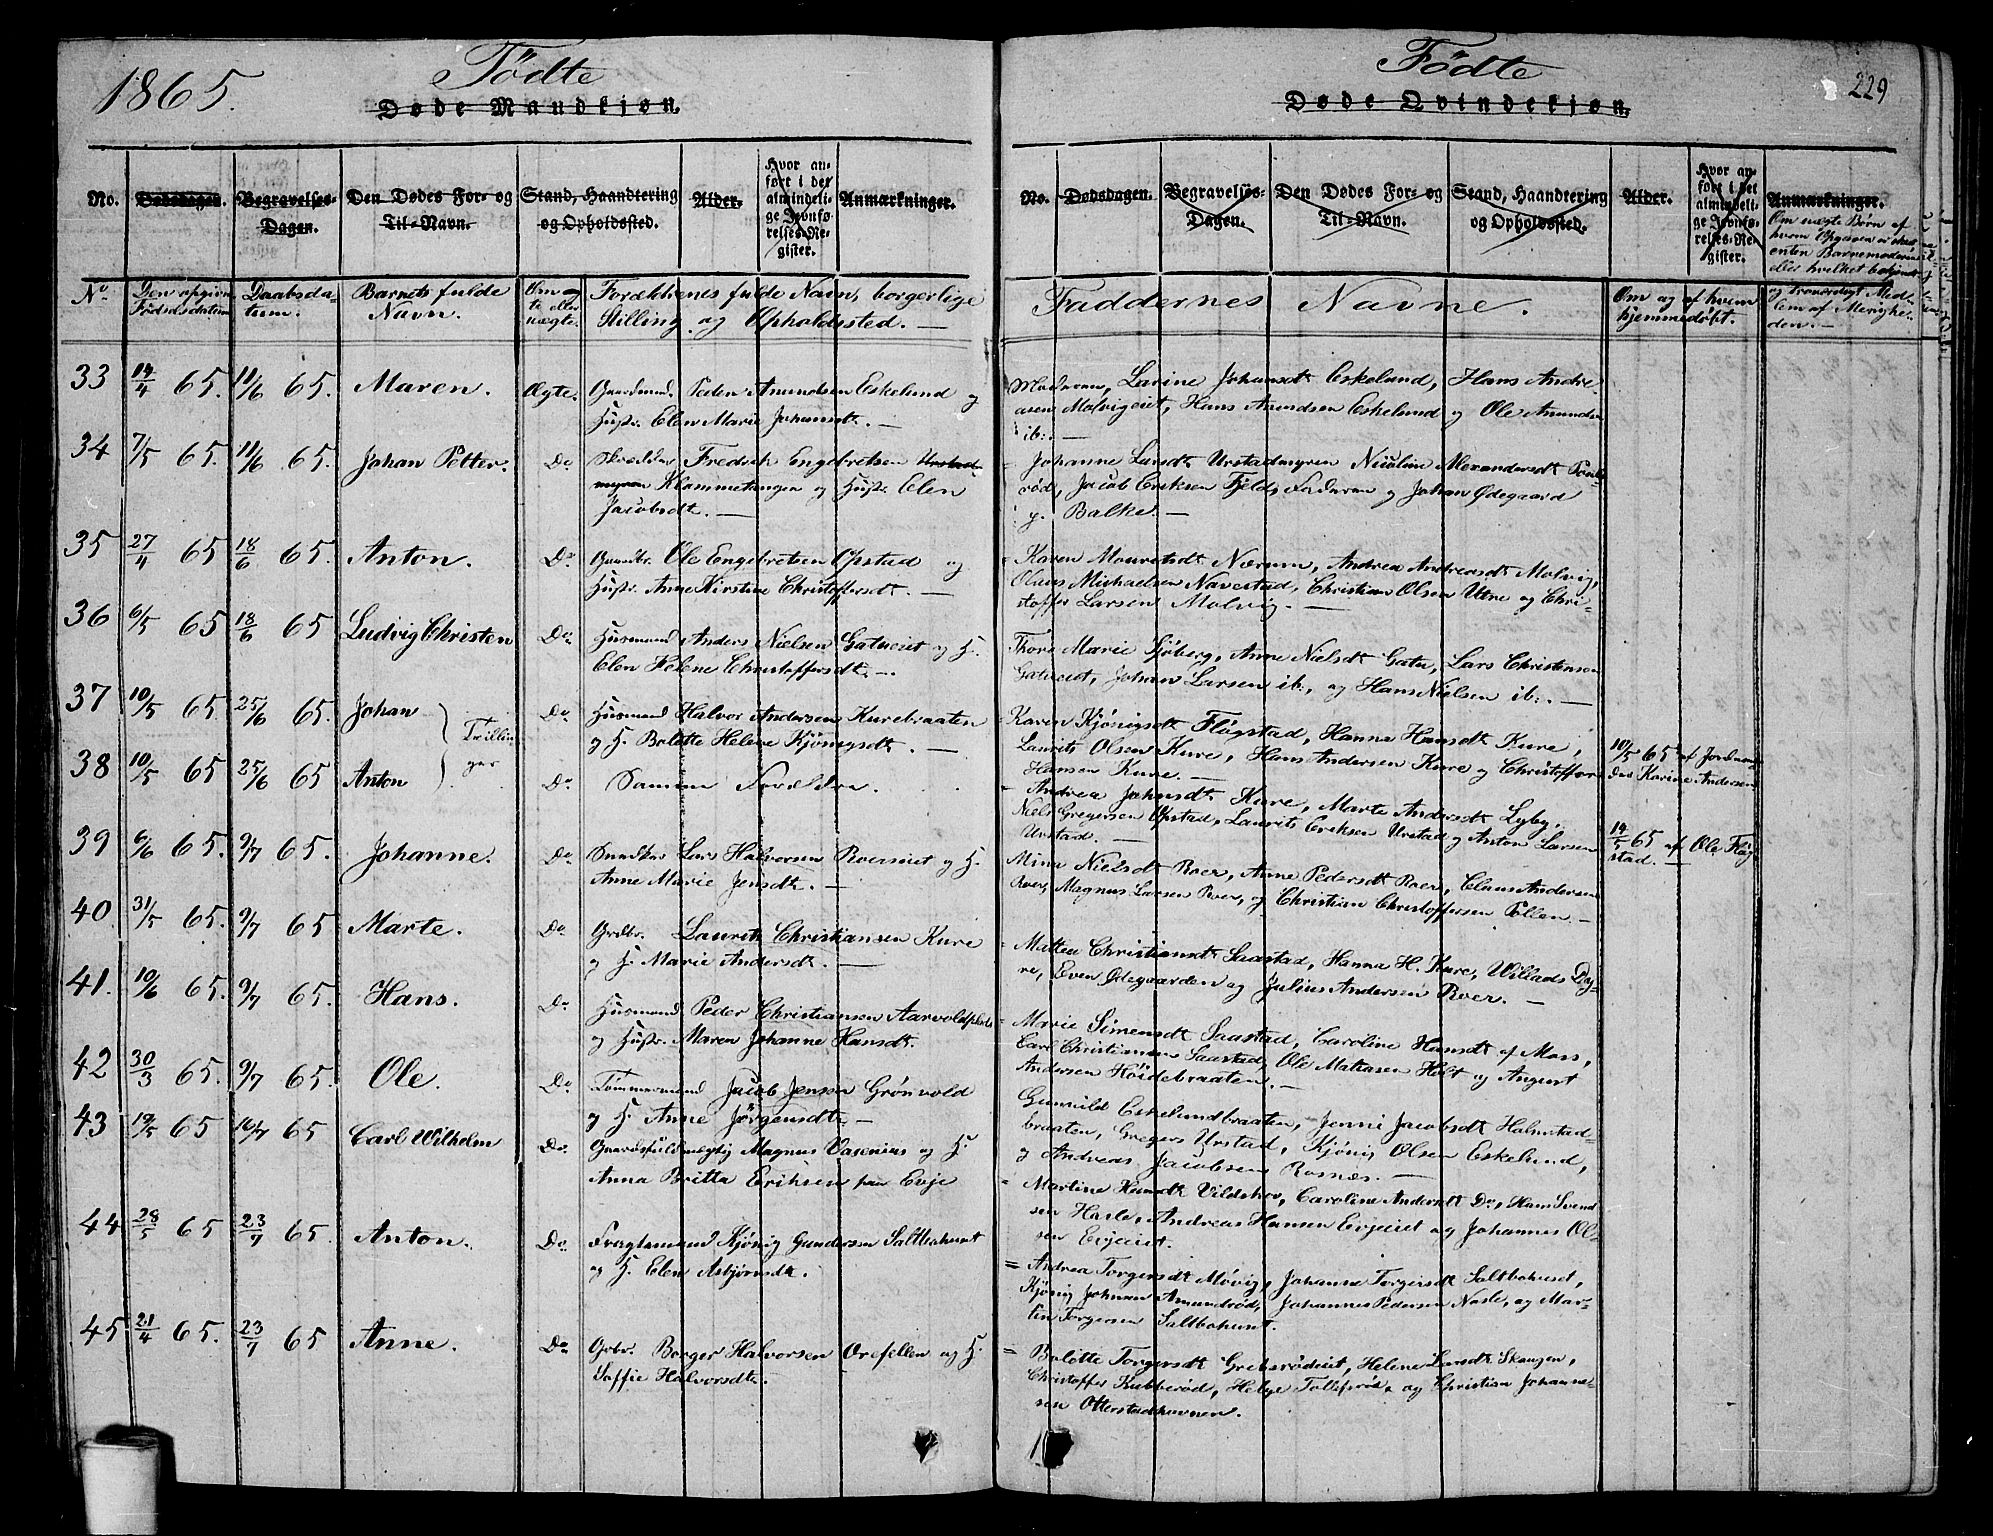 1865.
Födte
Döde Mandkjøn.
No. Dødsdagen. Begravelses-Dagen. Den Dødes For- og Til-Navn. Stand, Haandtering og Opholdssted. Alder. Hvor anført i det almindelige Jevnførelses-Register. Anmærkninger.
No. Den opgivne Fødselsdatum Daabsdatum. Barnets fulde Navn. Om ægte eller uægte. Forældrenes fulde Navn, borgerlige Stilling og Opholdssted. —
33 14/4 65. 11/6 65. Maren. Ægte. Gaardmd. Peder Amundsen Eskelund og
Hustr. Elen Marie Johannsdt. —
34 7/5 65. 11/6 65. Johan Petter. Do Skrædder Fredrik Engebretsen Urstad-
myren Klommetangen og Hustr. Elen
Jacobsdt. —
35 27/4 65 18/6 65. Anton. Do Gaardbr. Ole Engebretsen Opstad og
Hustr. Anne Kirstine Christoffersdt. —
36 6/5 65 18/6 65 Ludvig Christen Do. Husmand Anders Nielsen Gatueiet og H.
Elen Helene Christoffersdt. —
37 10/5 65. 25/6 65. Johan Tvillinger Do Husmand Halvor Andersen Kurebraaten
og H. Bolette Helene Kjönigsdt. —
38 10/5 65 25/6 65 Anton Do Samme Forældre.
39 6/6 65. 9/7 65. Johanne. Do Lars Halvorsen Roerseiet og H.
Anne Marie Jensdt. —
40 31/5 65. 9/7 65 Marte. Do Grdbr. Laurits Christiansen Kure
og H. Marie Andersdt. —
41. 10/6 65. 9/7 65. Hans. Do Husmand Peder Christiansen Aarvoldplads
og Hustr. Maren Johanne Hansdt.
42 30/3 65. 9/7 65. Ole. Do Tömmermand Jacob Jensen Grönvold
og H. Anne Jörgensdt. —
43 19/5 65 16/7 65 Carl Wilhelm Do. Gaardsfuldmægtig Magnus Vasenius og H.
Anna Britta Eriksen paa Evje
44 28/5 65 23/7 65. Anton. Do Fragtemand Kjönig Gundersen Saltbohuset
og H. Elen Asbjörnsdt.
45 21/4 65. 23/7 65 Anne. Do Grbr. Borger Halvorsen Orefellen og H.
Soffie Halvorsdt.
Födte
229
Døde Qvindekjøn.
No. Dødsdagen. Begravelses-Dagen. Den Dødes For- og Til-Navn. Stand, Haandtering og Opholdssted. Alder. Hvor anført i det almindelige Jevnførelses-Register. Anmærkninger.
Faddernes Navne. Om og af hvem hjemmedöbt. Om uægte Børn af hvem Opgaven er skeet enten Barnemoderen eller hvilket bekjendt og troværdigt Medlem af Menigheden. —
Madmoen, Larine Johansdt Eskelund, Hans Andre
asen Molvigeiet, Hans Amundsen Eskelund og Ole Amundsen
ib: —
Johanne Larsdt. Urstadmyren Nicoline Alexandersdt
röd, Jacob Eriksen Fjeld, Faderen og Johan Ödegaard
p. Balke. —
Karen Mouretsdt Nærum, Andrea Andreasdt Molvig,
Olaus Michaelsen Navestad, Christian Olsen Utre og Chri-
stoffer Larsen Molvig. —
Thore Marie Sjöberg, Anne Nielsdt Gatu, Lars Christensen
Gatueiet, Johan Larsen ib:, og Hans Nielsen ib:. —
Karen Kjönigsdt Flögstad, Hanna Hansdt Kure,
Laurits Olsen Kure, Hans Andersen Kure og Christoffer
Hansen Kure. — 10/5 65 af Jordmo-
der Karine Andersen
Andrea Johnsdt. Kure, Marte Andersdt Lyby,
Niels Gregersen Opstad, Laurits Eriksen Urstad og Anton Larsen
Urstad. — 14/5 65 af Ole Flög
stad. —
Mina Nielsdt Roer, Anne Pedersdt Roer, Claus Andersen
Roer, Magnus Larsen Roer, og Christian Christoffersen Pollen. —
Mattea Christiansdt Saastad, Hanna H. Kure, Willads Dy-
re, Even Ödegaarden og Julius Andersen Roer. —
Marie Simensdt Saastad, Caroline Hansdt af Moss,
Carl Christiansen Saastad, Ole Mathesen Holt og August
Andersen Höidebraaten. —
Gunnild Eskelundbraaten, Jenni Jacobsdt Halmstad-
braaten, Gregers Urstad, Kjönig Olsen Eskelund,
og Andreas Jacobsen Rosnæs. —
Martine Hansdt Vildskov, Caroline Andersdt Do, Hans Svend
sen Hasle, Andreas Hansen Evjeeiet og Johannes Ol-
sen Evjeeiet.
Andrea Torgersdt Movig, Johanne Torgersdt Saltbohuset,
Kjönig Johnsen Amundröd, Johannes Pedersen Nasle, og Mar-
tin Torgersen Saltbohuset.
Bolette Torgersdt Grebsrödeiet, Helene Larsdt Skaugen,
Christoffer Kubberöd, Helge Tollefsröd, og Christian Johanne-
sen Otterstadhavnen.